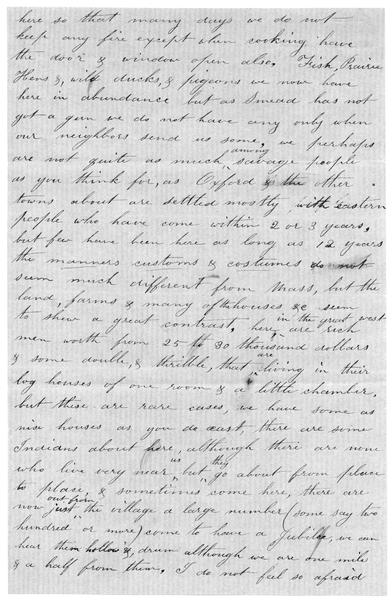 here so that many days we do not
keep any fire except when cooking have
the door & window open also. Fish, Prairie
Hens &, wild ducks, & pigeons we now have
here in abundance but as Smead has not
got a gun we do not have any only when
our neighbors send us some, we perhaps
are not quite as much among savage people
as you think for, as Oxford & the other
towns about are settled mostly with eastern
people who have come within 2 or 3 years,
but few have been here as long as 12 years
the manners customs & costumes do not
seem much different from Mass, but the
land, farms & many of the houses &c seem
to shew a great contrast, here, in the great west are rich
men worth from 25 to 30 thousand dollars
& some double, & thribble, that are living in their
log houses of one room & a little chamber,
but these are rare cases, we have some as
nice houses as you do east, there are some
Indians about here, although there are none
who live very near us but they go about from place
to place, & sometimes come here, there are
now just out from the village a large number (some say two
hundred or more) come to have a Jubilee, we can
hear them hollow &, drum although we are one mile
& a half from them, I do not feel so afraid